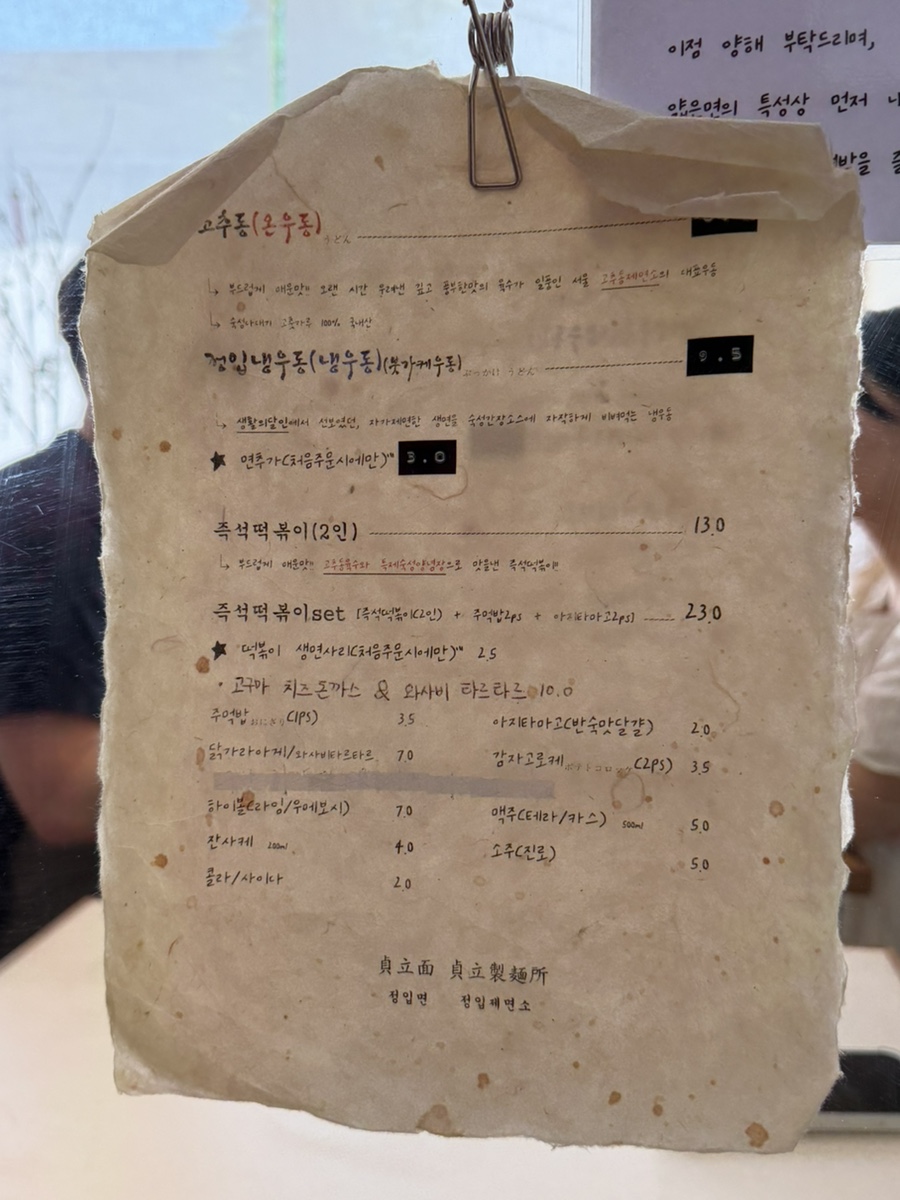 이점 양해 부탁드리며,
얇은면의 특성상 먼저
고추동(온우동) うどん
↳ 부드럽게 매운맛!! 오랜 시간 우려낸 깊고 풍부한맛의 육수가 일품인 서울 고추동제면소의 대표우동
↳ 숙성다대기 고춧가루 100% 국내산
정입냉우동(냉우동)(붓가케우동) ぶっかけ うどん 9.5
↳ 생활의달인에서 선보였던, 자가제면한 생면을 숙성간장소스에 자작하게 비벼먹는 냉우동
★ 면추가(처음주문시에만) 3.0
즉석떡볶이(2인) 13.0
↳ 부드럽게 매운맛!! 고추동육수와 특제숙성양념장으로 맛을낸 즉석떡볶이!!
즉석떡볶이set [즉석떡볶이(2인) + 주먹밥2ps + 아지타마고2ps] 23.0
★ 떡볶이 생면사리(처음주문시에만) 2.5
• 고구마 치즈돈까스 & 와사비 타르타르 10.0
주먹밥 おにぎり (1ps) 3.5
아지타마고(반숙맛달걀) 2.0
닭가라아게/와사비타르타르 7.0
감자고로케 ポテトコロッケ (2ps) 3.5
하이볼(라임/우메보시) 7.0
맥주(테라/카스) 500ml 5.0
잔사케 200ml 4.0
소주(진로) 5.0
콜라/사이다 2.0
貞立面 貞立製麵所
정입면 정입제면소